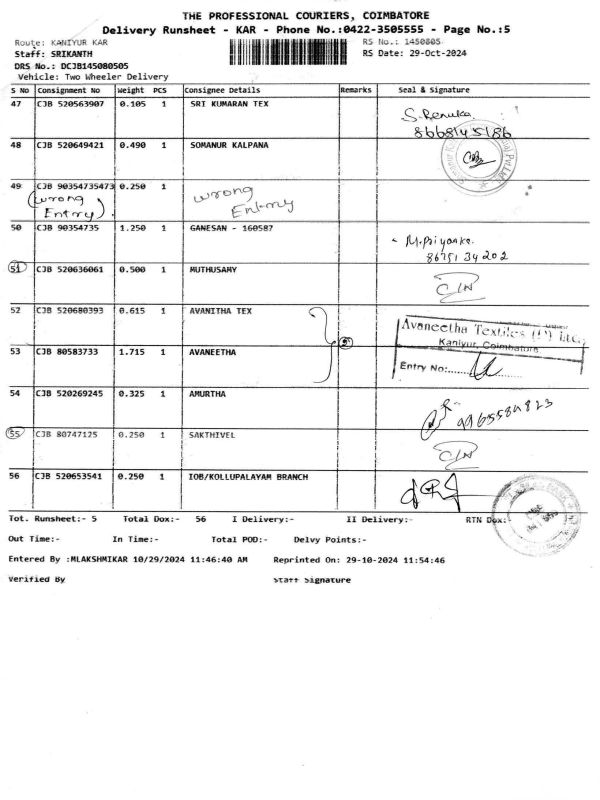 THE PROFESSIONAL COURIERS, COIMBATORE
Delivery Runsheet - KAR - Phone No.:0422-3505555 - Page No.:5
Route: KANIYUR KAR RS No.: 1450805
Staff: SRIKANTH RS Date: 29-Oct-2024
DRS No.: DCJB145080505
Vehicle: Two Wheeler Delivery
S No Consignment No Weight PCS Consignee Details Remarks Seal & Signature
47 CJB 520563907 0.105 1 SRI KUMARAN TEX S. Renuka
8668145186
48 CJB 520649421 0.490 1 SOMANUR KALPANA
49 CJB 90354735473 0.250 1 wrong Entry
(wrong
Entry)
50 CJB 90354735 1.250 1 GANESAN - 160587 M.Priyanka.
8675134202
51 CJB 520636061 0.500 1 MUTHUSAMY C/N
52 CJB 520680393 0.615 1 AVANITHA TEX
Avaneetha Textiles (P) Ltd.,
Kaniyur, Coimbatore
53 CJB 80583733 1.715 1 AVANEETHA
Entry No:
54 CJB 520269245 0.325 1 AMURTHA 9965584823
55 CJB 80747125 0.250 1 SAKTHIVEL C/N
56 CJB 520653541 0.250 1 IOB/KOLLUPALAYAM BRANCH
Tot. Runsheet:- 5 Total Dox:- 56 I Delivery:- II Delivery:- RTN Dox:-
Out Time:- In Time:- Total POD:- Delvy Points:-
Entered By :MLAKSHMIKAR 10/29/2024 11:46:40 AM Reprinted On: 29-10-2024 11:54:46
Verified By Staff Signature